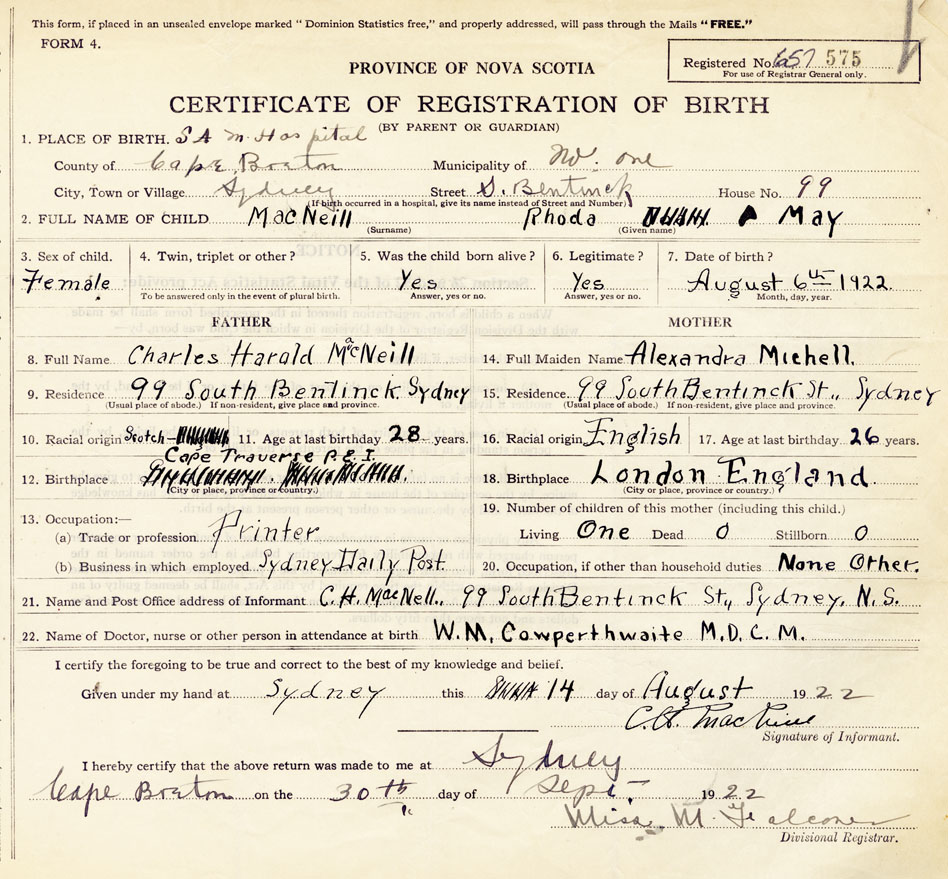 This form, if placed in an unsealed envelope marked “Dominion Statistics free,” and properly addressed, will pass through the Mails “FREE.”
FORM 4.
Registered No. 657 575
For use of Registrar General only.
PROVINCE OF NOVA SCOTIA
CERTIFICATE OF REGISTRATION OF BIRTH
(BY PARENT OR GUARDIAN)
1. PLACE OF BIRTH. S A M. Hospital
County of Cape Breton Municipality of No. one
City, Town or Village Sydney Street S. Bentinck House No. 99
(If birth occurred in a hospital, give its name instead of Street and Number)
2. FULL NAME OF CHILD MacNeill Rhoda May
(Surname) (Given name)
3. Sex of child. 4. Twin, triplet or other? 5. Was the child born alive? 6. Legitimate? 7. Date of birth?
Female Yes Yes August 6th 1922.
To be answered only in the event of plural birth. Answer, yes or no. Answer, yes or no. Month, day, year.
FATHER MOTHER
8. Full Name Charles Harold MacNeill 14. Full Maiden Name Alexandra Michell.
9. Residence 99 South Bentinck. Sydney 15. Residence. 99 South Bentinck St., Sydney
(Usual place of abode.) If non-resident, give place and province. (Usual place of abode.) If non-resident, give place and province.
10. Racial origin Scotch- 11. Age at last birthday 28 years. 16. Racial origin English 17. Age at last birthday 26 years.
Cape Traverse P.E.I.
12. Birthplace 18. Birthplace London England
(City or place, province or country.) (City or place, province or country.)
19. Number of children of this mother (including this child.)
13. Occupation:—
(a) Trade or profession Printer Living One Dead 0 Stillborn 0
(b) Business in which employed Sydney Daily Post. 20. Occupation, if other than household duties None Other.
21. Name and Post Office address of Informant C. H. MacNell., 99 South Bentinck St., Sydney, N.S.
22. Name of Doctor, nurse or other person in attendance at birth W. M. Cowperthwaite M.D.C.M.
I certify the foregoing to be true and correct to the best of my knowledge and belief.
Given under my hand at Sydney this 14 day of August 1922
Signature of Informant.
I hereby certify that the above return was made to me at Sydney
Cape Breton on the 30th day of Sept. 1922
Miss M. Falconer
Divisional Registrar.